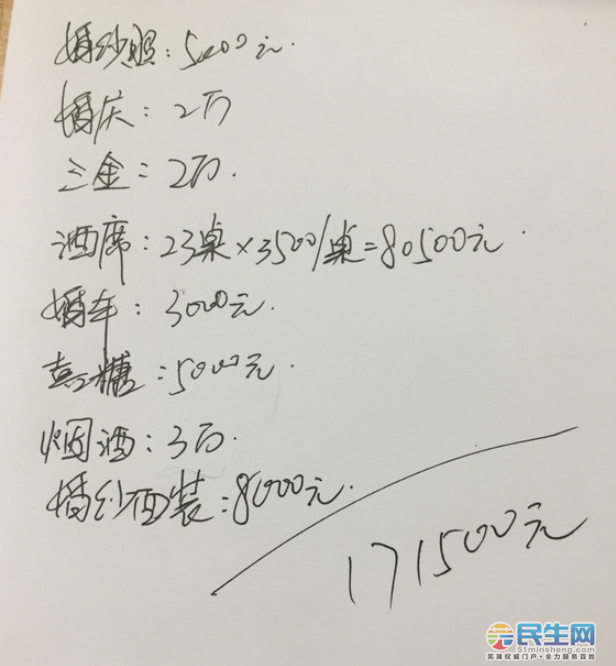 婚纱照：5000元.
婚庆：2万
三金：2万.
酒席：23桌×3500/桌=80500元.
婚车：3000元.
喜糖：5000元.
烟酒：3万.
婚纱西装：8000元.
171500元
民生网
51minsheng.com
芜湖权威门户·全力服务百姓